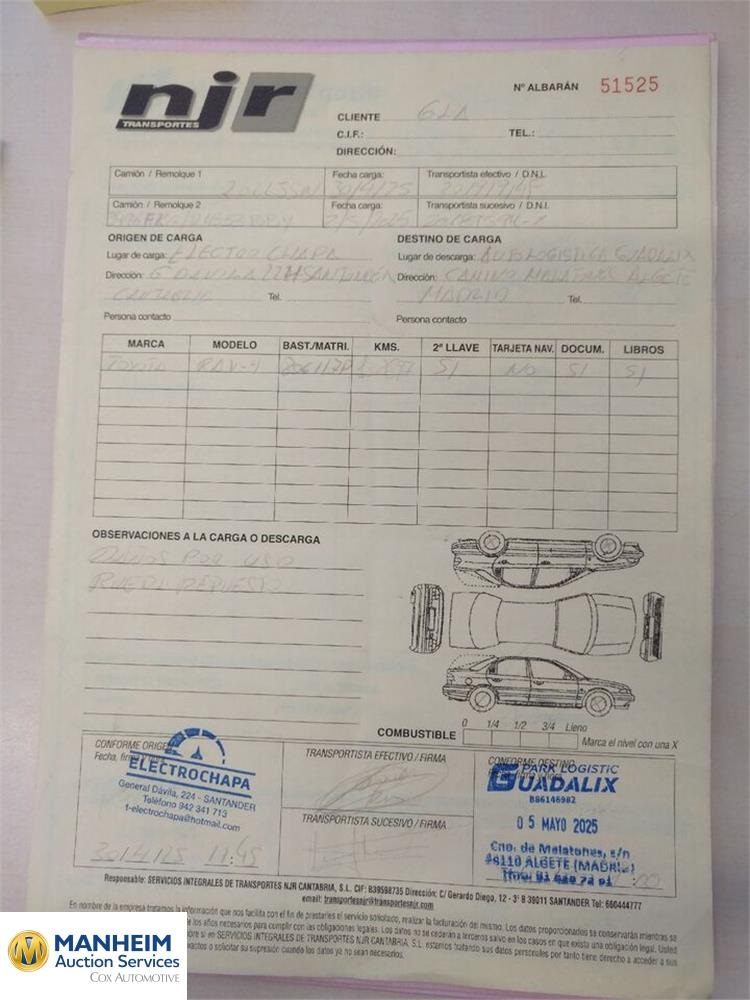 njr
TRANSPORTES
Nº ALBARÁN 51525
CLIENTE
C.I.F.: TEL.:
DIRECCIÓN:
Camión / Remolque 1 Fecha carga: 30/4/25 Transportista efectivo / D.N.I.
Camión / Remolque 2 Fecha carga: Transportista sucesivo / D.N.I.
ORIGEN DE CARGA DESTINO DE CARGA
Lugar de carga: ELECTRO CHAPA Lugar de descarga: AUTOLOGISTICA GUADALIX
Dirección: G DAVILA SANTANDER Dirección: CAMINO MALATONES ALGETE
CANTABRIA Tel. MADRID Tel.
Persona contacto Persona contacto
MARCA MODELO BAST./MATRI. KMS. 2ª LLAVE TARJETA NAV. DOCUM. LIBROS
TOYOTA RAV-4 SI NO SI SI
OBSERVACIONES A LA CARGA O DESCARGA
DAÑOS POR USO
RUEDA REPUESTO
COMBUSTIBLE 0 1/4 1/2 3/4 Lleno
Marca el nivel con una X
CONFORME ORIGEN
Fecha, firma
ELECTROCHAPA
General Dávila, 224 - SANTANDER
Teléfono 942 341 713
f-electrochapa@hotmail.com
30/4/25 11:45
TRANSPORTISTA EFECTIVO / FIRMA
TRANSPORTISTA SUCESIVO / FIRMA
CONFORME DESTINO
Fecha, firma
PARK LOGISTIC
GUADALIX
B86146982
05 MAYO 2025
Cno. de Malatones, s/n
28110 ALGETE (MADRID)
Responsable: SERVICIOS INTEGRALES DE TRANSPORTES NJR CANTABRIA, S.L. CIF: B39598735 Dirección: C/ Gerardo Diego, 12 - 3º B 39011 SANTANDER Tel: 666444777
email: transportesnjr@transportesnjr.com
En nombre de la empresa tratamos la información que nos facilita con el fin de prestarles el servicio solicitado, realizar la facturación del mismo. Los datos proporcionados se conservarán mientras se
de los años necesarios para cumplir con las obligaciones legales. Los datos no se cederán a terceros salvo en los casos en que exista una obligación legal. Usted
sobre si en SERVICIOS INTEGRALES DE TRANSPORTES NJR CANTABRIA, S.L. estamos tratando sus datos personales por tanto tiene derecho a acceder a sus
o solicitar su supresión cuando los datos ya no sean necesarios.
MANHEIM
Auction Services
COX AUTOMOTIVE